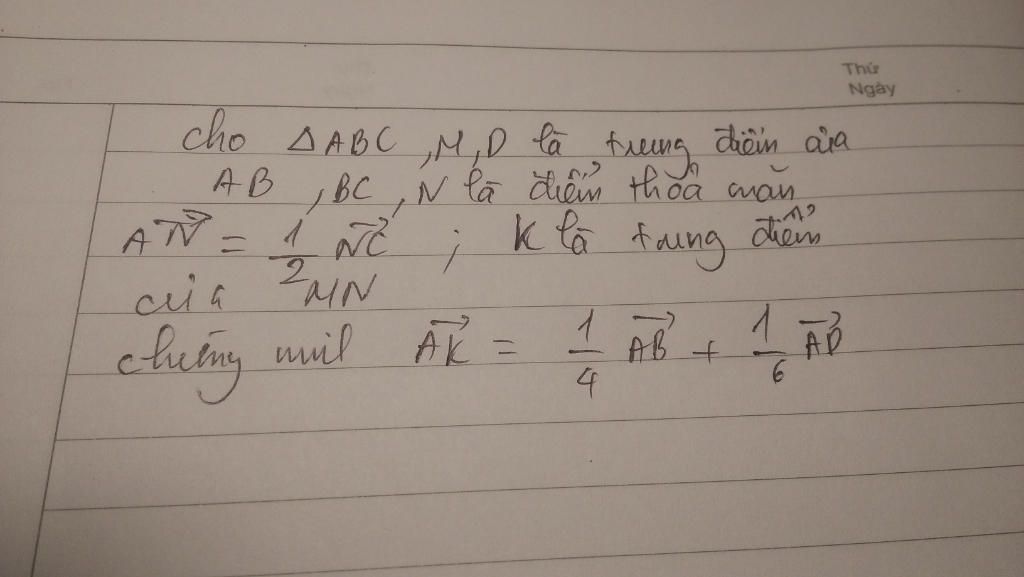 Thứ
Ngày
Cho ΔABC, M, D là trung điểm của
AB, BC, N là điểm thoả mãn
\overrightarrow{AN} = \frac{1}{2} \overrightarrow{NC} ; K là trung điểm
của MN
chứng minh \overrightarrow{AK} = \frac{1}{4} \overrightarrow{AB} + \frac{1}{6} \overrightarrow{AD}